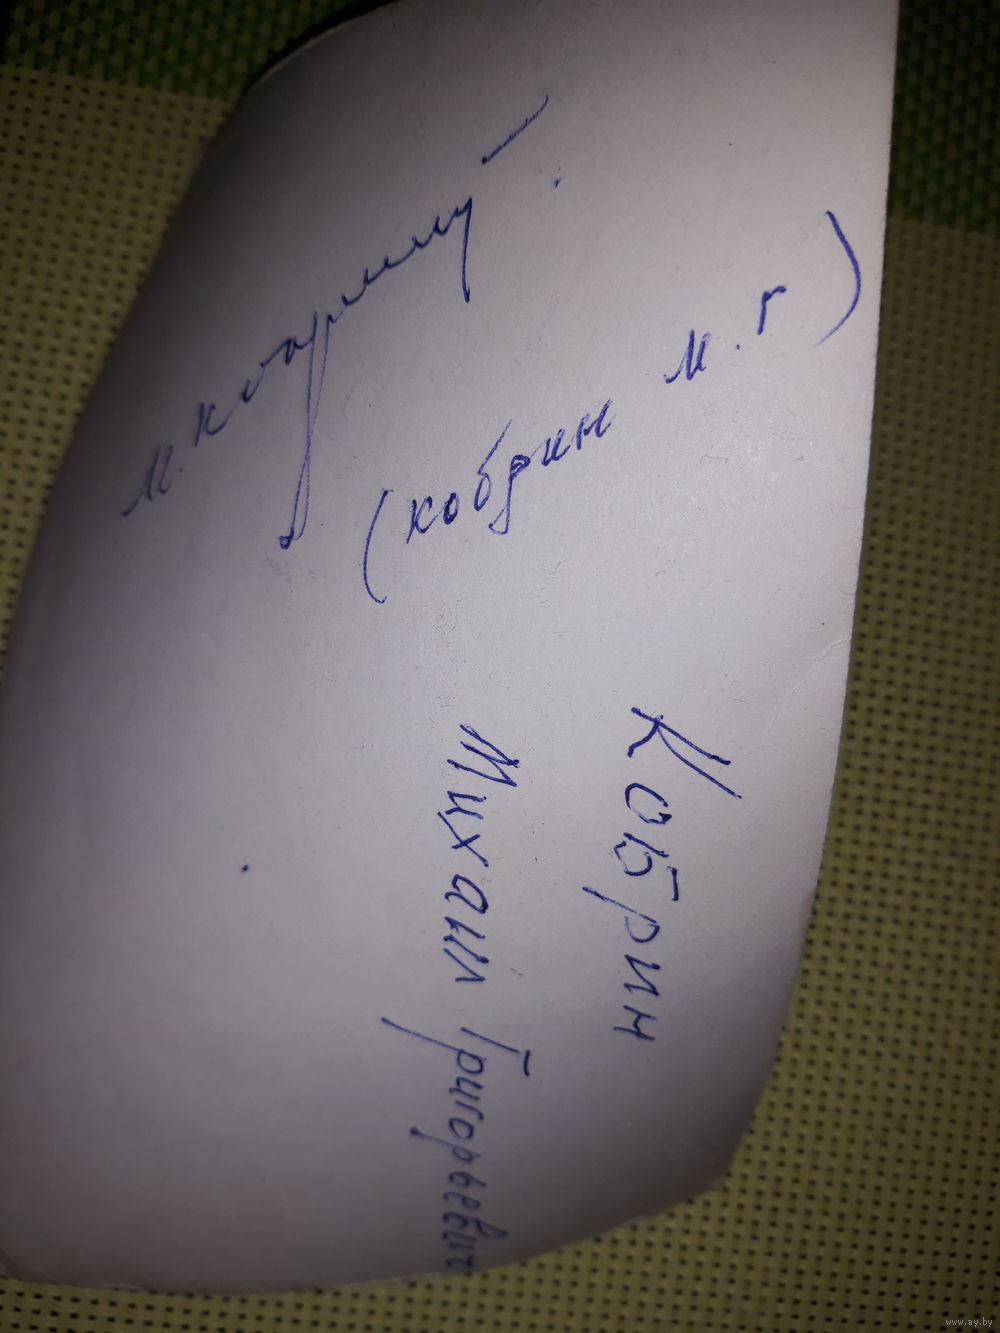 (кобрин м. г)
Кобрин
Михаил Григорьевич
www.ay.by